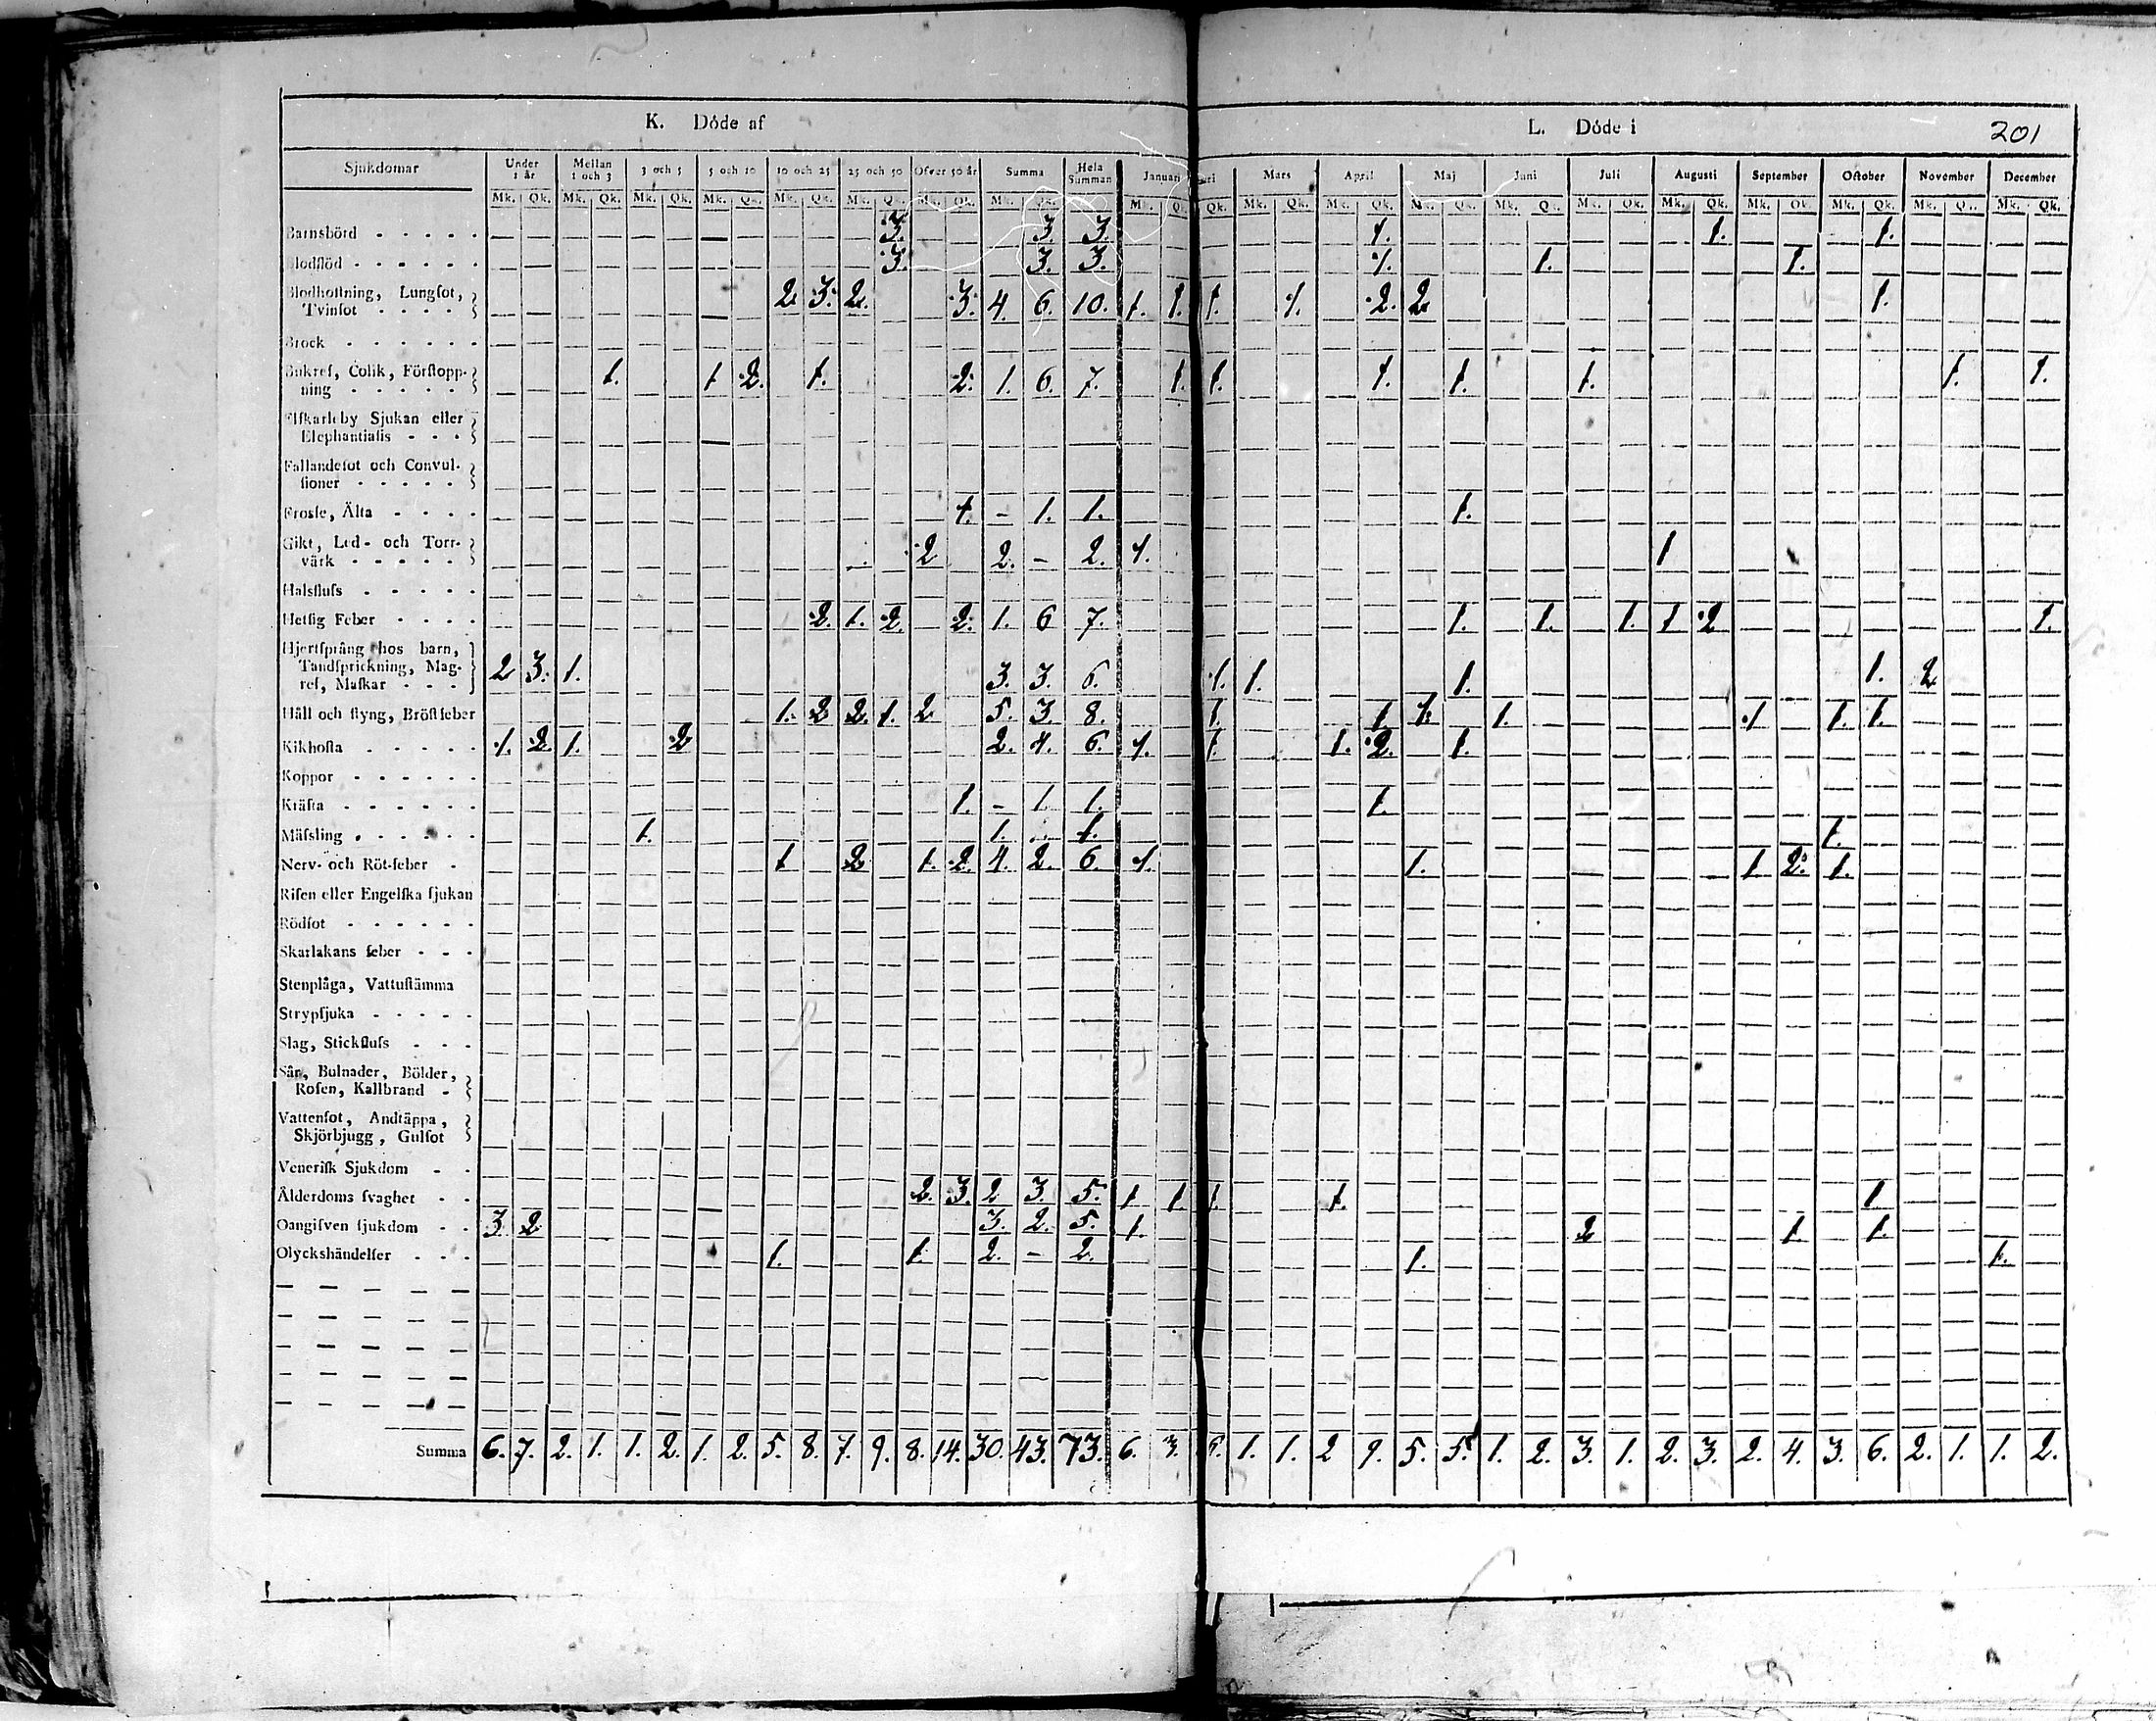 K. Döde af
L. Döde i
201
Sjukdomar Under 1 år Mellan 1 och 3 3 och 5 5 och 10 10 och 25 25 och 50 Öfver 50 år Summa Hela Summan Januari Mars April Maj Juni Juli Augusti September October November December
Mk. Qk. Mk. Qk. Mk. Qk. Mk. Qk. Mk. Qk. Mk. Qk. Mk. Qk. Mk. Qk. Mk. Qk. Qk. Mk. Qk. Mk. Qk. Mk. Qk. Mk. Qk. Mk. Qk. Mk. Qk. Mk. Qk. Mk. Qk. Mk. Qk. Mk. Qk.
Barnsbörd - - - - - 3. 3. 3. 1. 1. 1.
Blodflöd - - - - - - 3. 3. 3. 1. 1. 1.
Blodhostning, Lungsot,
Tvinsot - - - - 2 3. 2. 3. 4. 6. 10. 1. 1. 1. 1. 2. 2 1.
Brock - - - - - -
Bukref, Colik, Förstopp-
ning - - - - - 1. 1 2. 1. 2. 1. 6. 7. 1. 1. 1. 1. 1. 1. 1.
Elfkarleby Sjukan eller
Elephantiasis - - -
Fallandesot och Convul-
sioner - - - - -
Frosse, Älta - - - - 1. – 1. 1. 1.
Gikt, Led- och Torr-
värk - - - - - 2 2. – 2. 1. 1
Halsfluss - - - - -
Hetsig Feber - - - - 2. 1. 2. 2. 1. 6 7. 1. 1. 1. 1 2 1.
Hjertsprång hos barn,
Tandsprickning, Mag-
ref, Maskar - - - 2 3. 1. 3. 3. 6. 1. 1. 1. 1. 2
Håll och styng, Bröstfeber 1. 2 2. 1. 2 5. 3. 8. 1. 1 1. 1. 1 1. 1.
Kikhosta - - - - - 1. 2. 1. 2 2. 4. 6. 1. 1. 1. 2. 1.
Koppor - - - - - -
Kräfta - - - - - - 1. – 1 1. 1.
Mässling - - - - - 1. 1. 1. 1.
Nerv- och Röt-feber - 1 2 1. 2. 4. 2. 6. 1. 1. 1 2. 1.
Risen eller Engelska sjukan
Rödsot - - - - - -
Skarlakans feber - - -
Stenplåga, Vattustämma
Strypsjuka - - - - -
Slag, Stickfluss - - -
Sår, Bulnader, Bölder,
Rosen, Kallbrand -
Vattensot, Andtäppa,
Skjörbjugg, Gulsot
Venerisk Sjukdom - -
Ålderdoms svaghet - - 2. 3. 2 3. 5. 1. 1. 1. 1. 1.
Oangifven sjukdom - - 3. 2 3. 2. 5. 1. 2 1 1.
Olyckshändelser - - - 1. 1. 2. – 2. 1. 1.
Summa 6. 7. 2. 1. 1. 2. 1. 2. 5. 8. 7. 9. 8. 14. 30. 43. 73. 6. 3. 1. 1. 2 9. 5. 5. 1. 2. 3. 1. 2. 3. 2. 4. 3. 6. 2. 1. 1. 2.